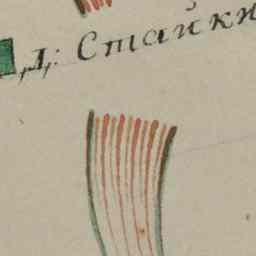 Д: Стайки